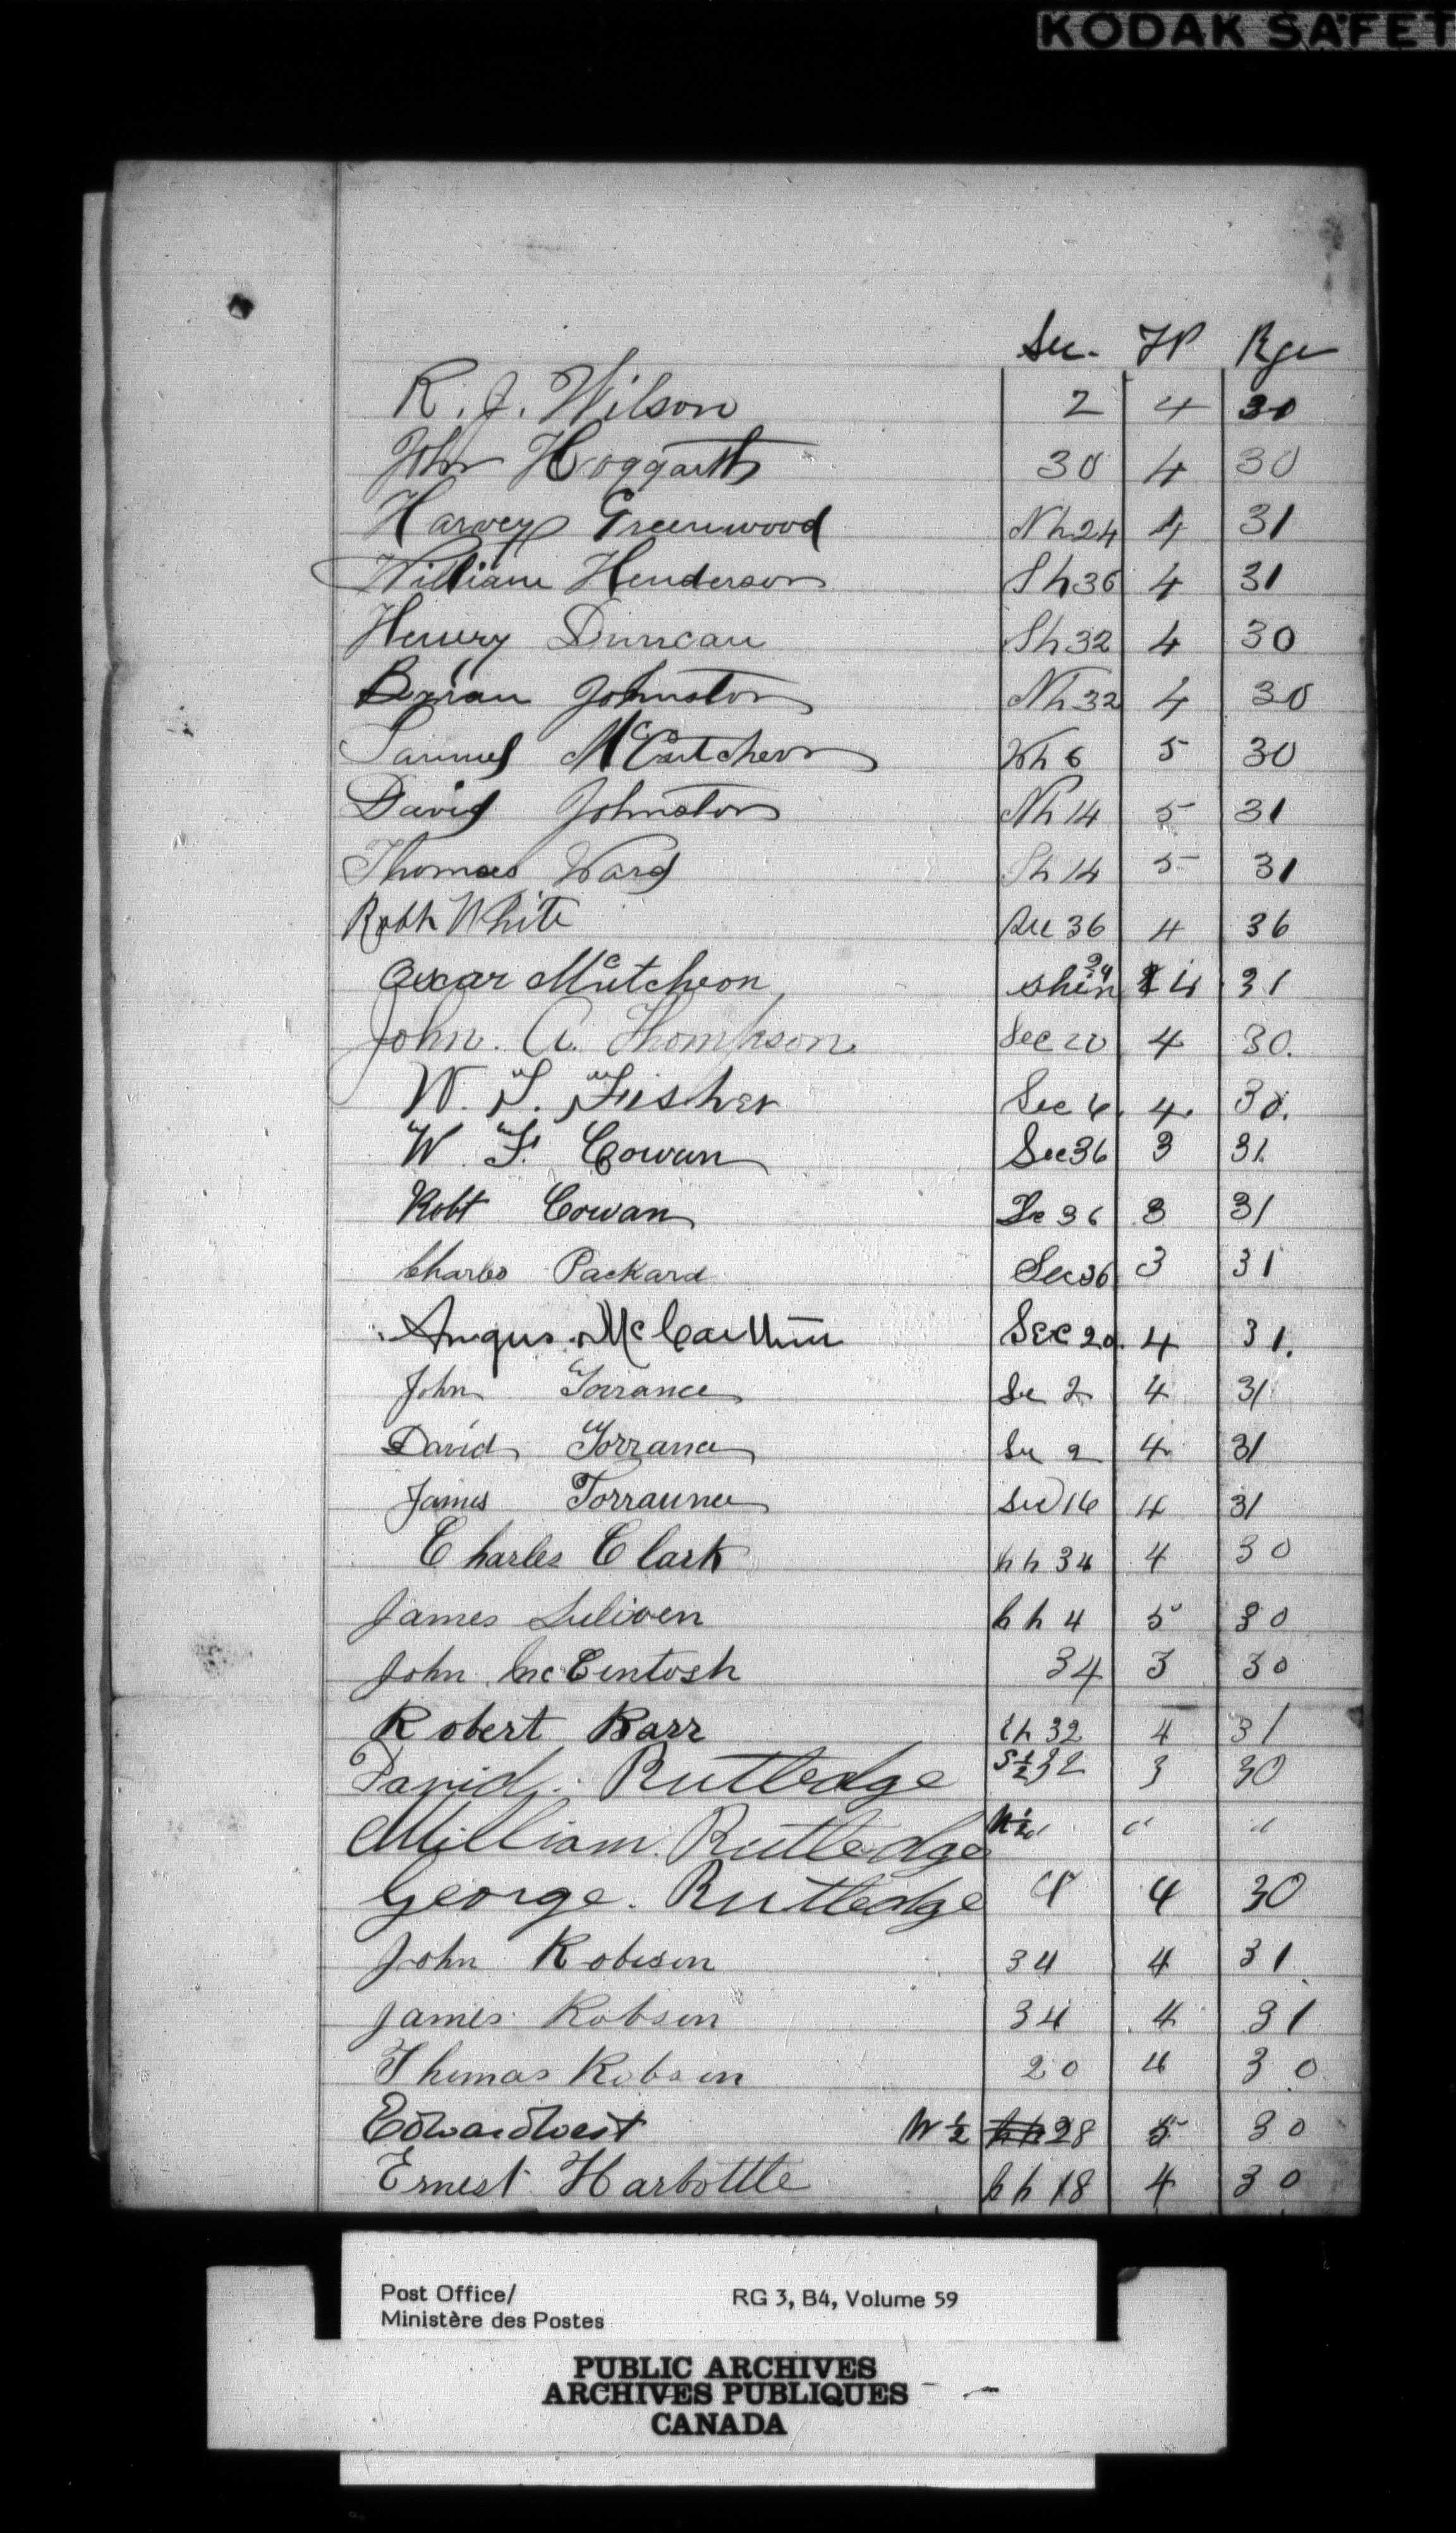 KODAK SAFET
Sec. TP Rge
R. J. Wilson 2 4 30
John Hoggarth 30 4 30
Harvey Greenwood Nh 24 4 31
William Henderson Sh 36 4 31
Henery Duncan Sh 32 4 30
Johnston Nh 32 4 30
Samuel McCutcheon Wh 6 5 30
David Johnston Nh 14 5 31
Thomas Ward Sh 14 5 31
Robt White Sec 36 4 36
Oscar McCutcheon 4 31
John. A. Thompson Sec 20 4 30.
W. T. Fisher Sec 6. 4. 30.
W F. Cowan Sec 36 3 31.
Robt Cowan Se 36 3 31
Charles Packard Sec 36 3 31
Angus McCarthur SEC 20. 4 31.
John Torrance Se 2 4 31
David Torrance Se 2 4 31
James Torraunce Sec 16 4 31
Charles Clark h h 34 4 30
James Suliven h h 4 5 30
John McEintosh 34 3 30
Robert Karr Eh 32 4 31
David. Rutledge S½ 32 3 30
William. Rutledge N½ " " "
George. Rutledge 4 4 30
John Robson 34 4 31
James Robson 34 4 31
Thomas Robson 20 4 30
Edward West W ½ 28 5 30
Ernest Harbottle h h 18 4 30
Post Office/ RG 3, B4, Volume 59
Ministère des Postes
PUBLIC ARCHIVES
ARCHIVES PUBLIQUES
CANADA